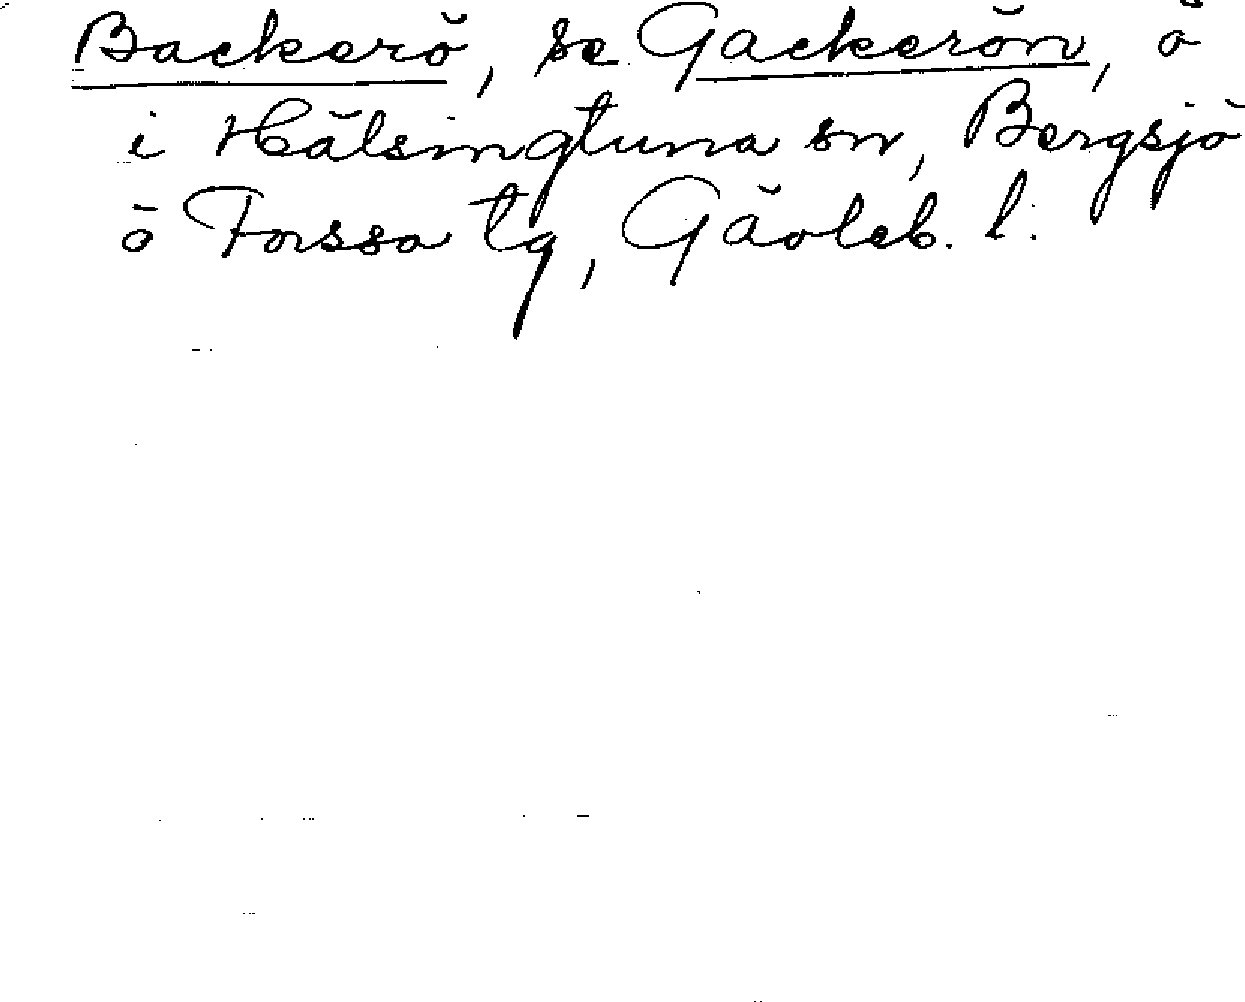 Backerö, se Gackerön, ö
i Hälsingtuna sn, Bergsjö
o Forssa tg, Gävleb. l.